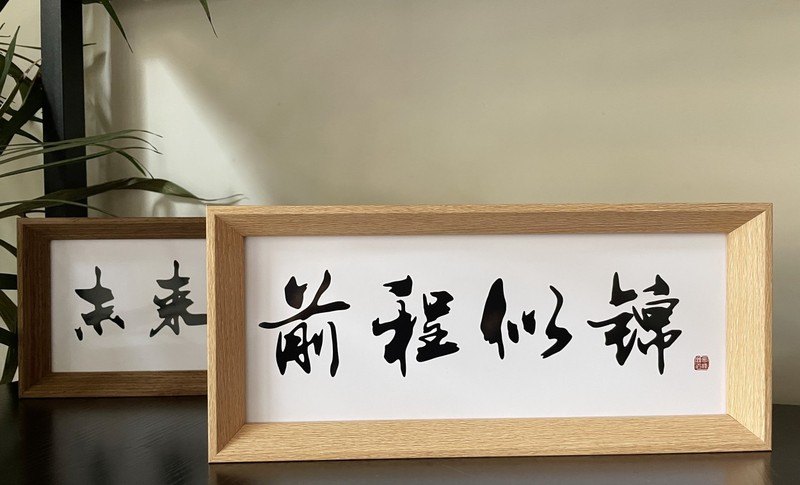 未来
前程似锦